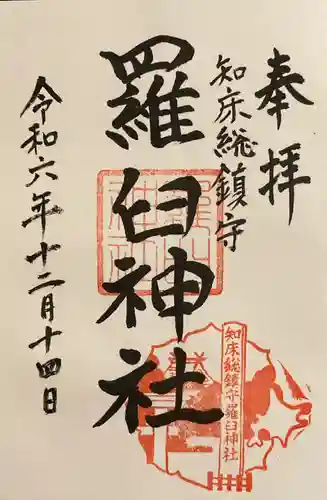 奉拝
知床総鎮守
羅臼神社
令和六年十二月十四日
知床総鎮守羅臼神社